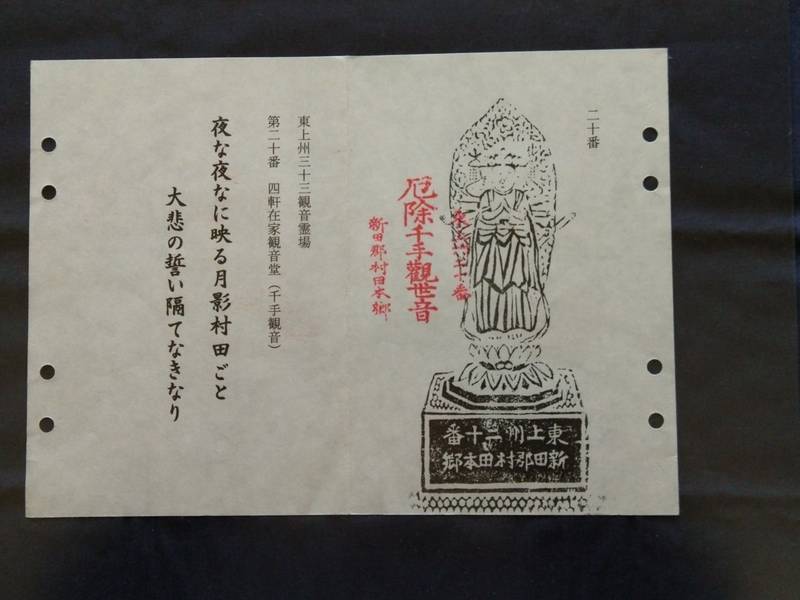 二十番
東上州二十番
新田郡村田本郷
厄除千手觀世音
新田郡村田本郷
東上州三十三観音霊場
第二十番　四軒在家観音堂（千手観音）
夜な夜なに映る月影村田ごと
大悲の誓い隔てなきなり